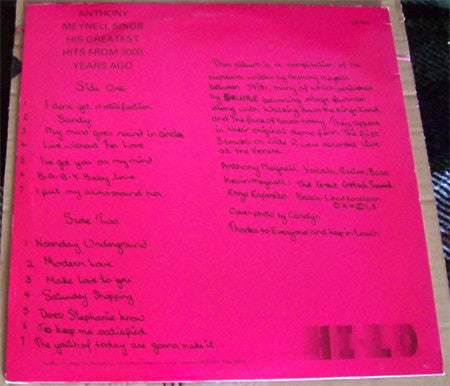 ANTHONY
MEYNELL SINGS
HIS GREATEST
HITS FROM 3000
YEARS AGO
Side One
1 I dont get satisfaction
2 Sandy
3 My mind goes round in circles
4 Live without her Love
5 Ive got you on my mind
6 B-A-B-Y Baby Love
7 I put my arms around her
Side Two
1 Noonday Underground
2 Modern Love
3 Make Love to you
4 Saturday Shopping
5 Does Stephanie know
6 To keep me satisfied
7 The youth of today are gonna make it.
This album is a compilation of the
numbers written by Anthony Meynell
between 79/81, many of which performed
by SQUIRE becoming stage favorites
along with Walking down the Kings Road
and The face of Youth today. They appear
in their original demo form. The first
3 tracks on side 2 were recorded live
at the Venue.
Anthony Meynell: Vocals, Guitar, Bass
Kevin Meynell: The Great Crated Sound
Enzo Esposito: Bass, Lead Vocal on
Cover photo by Carolyn
Thanks to Everyone and keep in touch
HI-LO